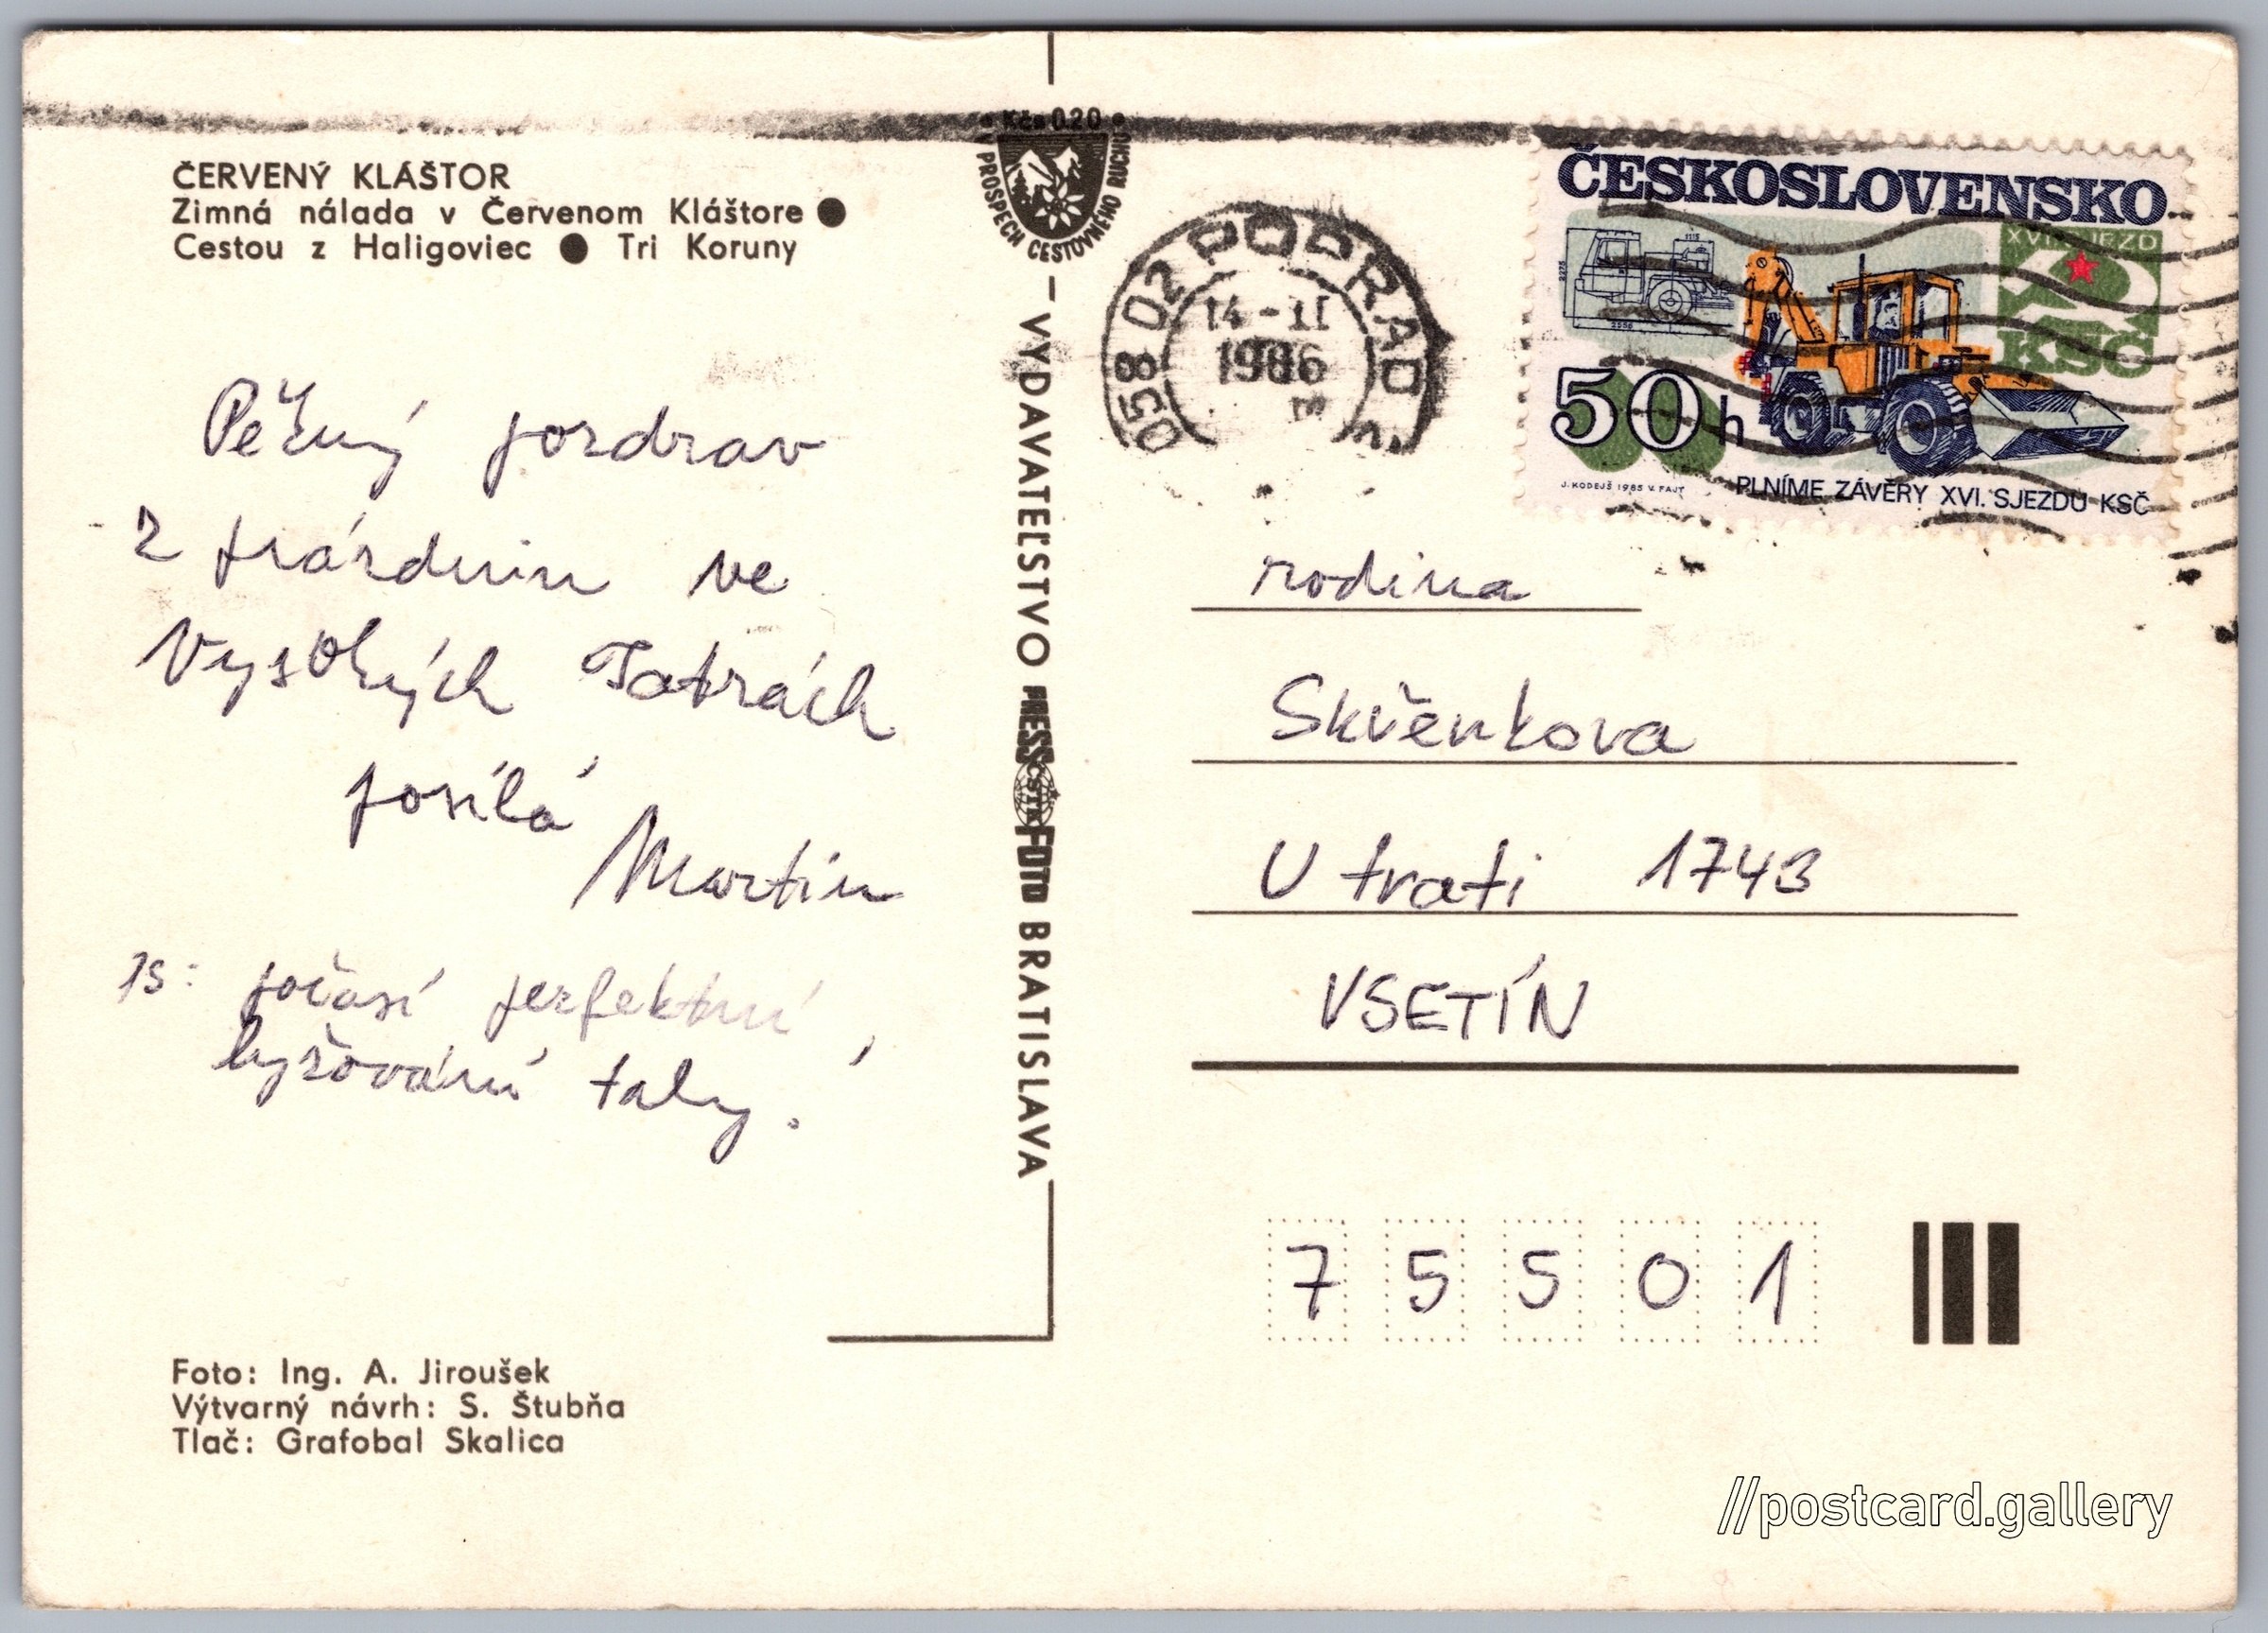 Kčs 0,20
V PROSPECH CESTOVNÉHO RUCHU
ČERVENÝ KLÁŠTOR
Zimná nálada v Červenom Kláštore ●
Cestou z Haligoviec ● Tri Koruny
Pěkný pozdrav
z prázdnin ve
Vysokých Tatrách
posílá
Martin
PS: počasí perfektní,
lyžování taky.
Foto: Ing. A. Jiroušek
Výtvarný návrh: S. Štubňa
Tlač: Grafobal Skalica
VYDAVATEĽSTVO PRESSFOTO BRATISLAVA
ČSTK
058 02 POPRAD
14-II
1986
ČESKOSLOVENSKO
XVII. SJEZD
KSČ
50h
J. KODEJŠ 1985 V. FAJT
PLNÍME ZÁVĚRY XVI. SJEZDU KSČ
rodina
Skřenkova
U trati 1743
VSETÍN
7 5 5 0 1
//postcard.gallery